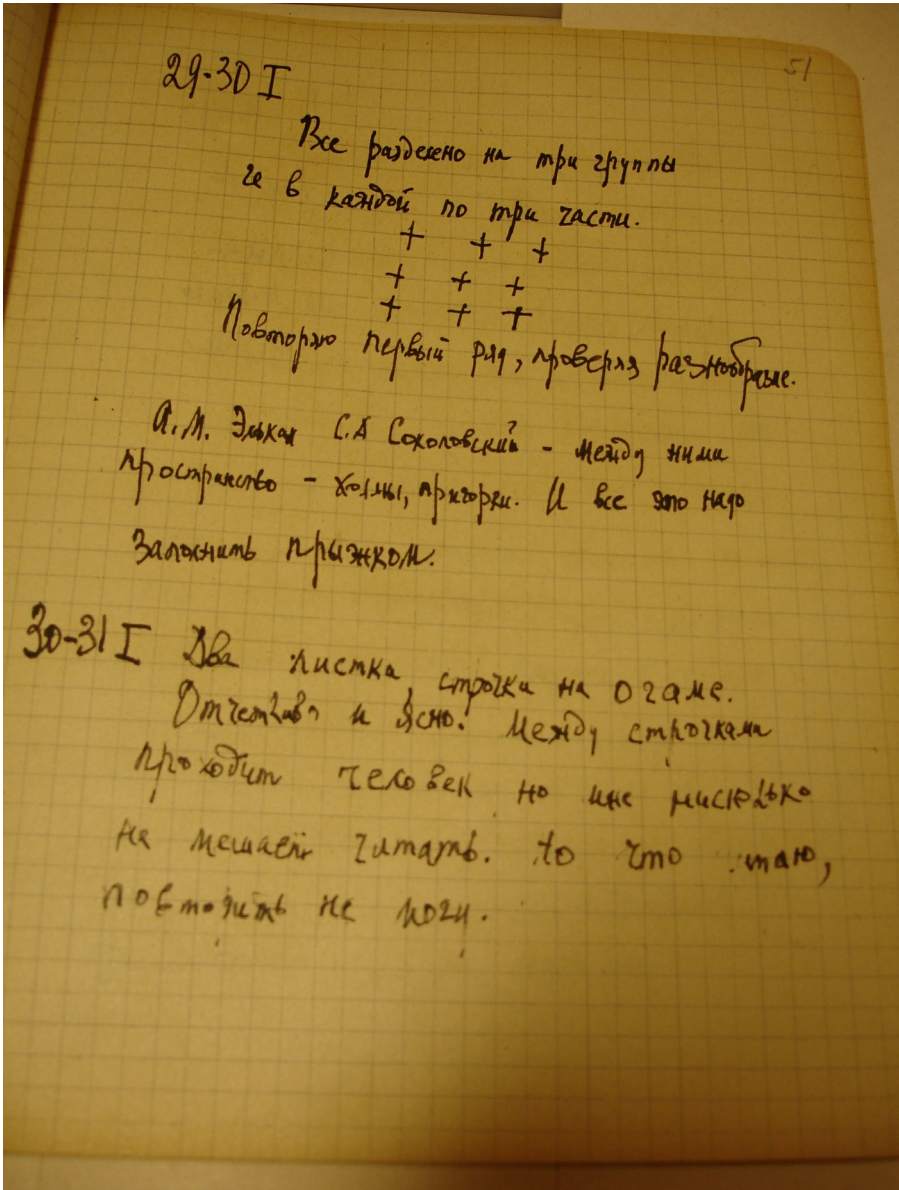 51
29-30 I
Все разделено на три группы
и в каждой по три части.
+ + +
+ + +
+ + +
Повторяю первый ряд, проверяя разнообразие.
А.М. Элькан С.А Соколовский - между ними
пространство - холмы, пригорки. И все это надо
заполнить прыжком.
30-31 I Два листка, строчки на огаме.
Отчетливо и ясно. Между строчками
проходит человек но мне нисколько
не мешает читать. Но что
повторить не могу.